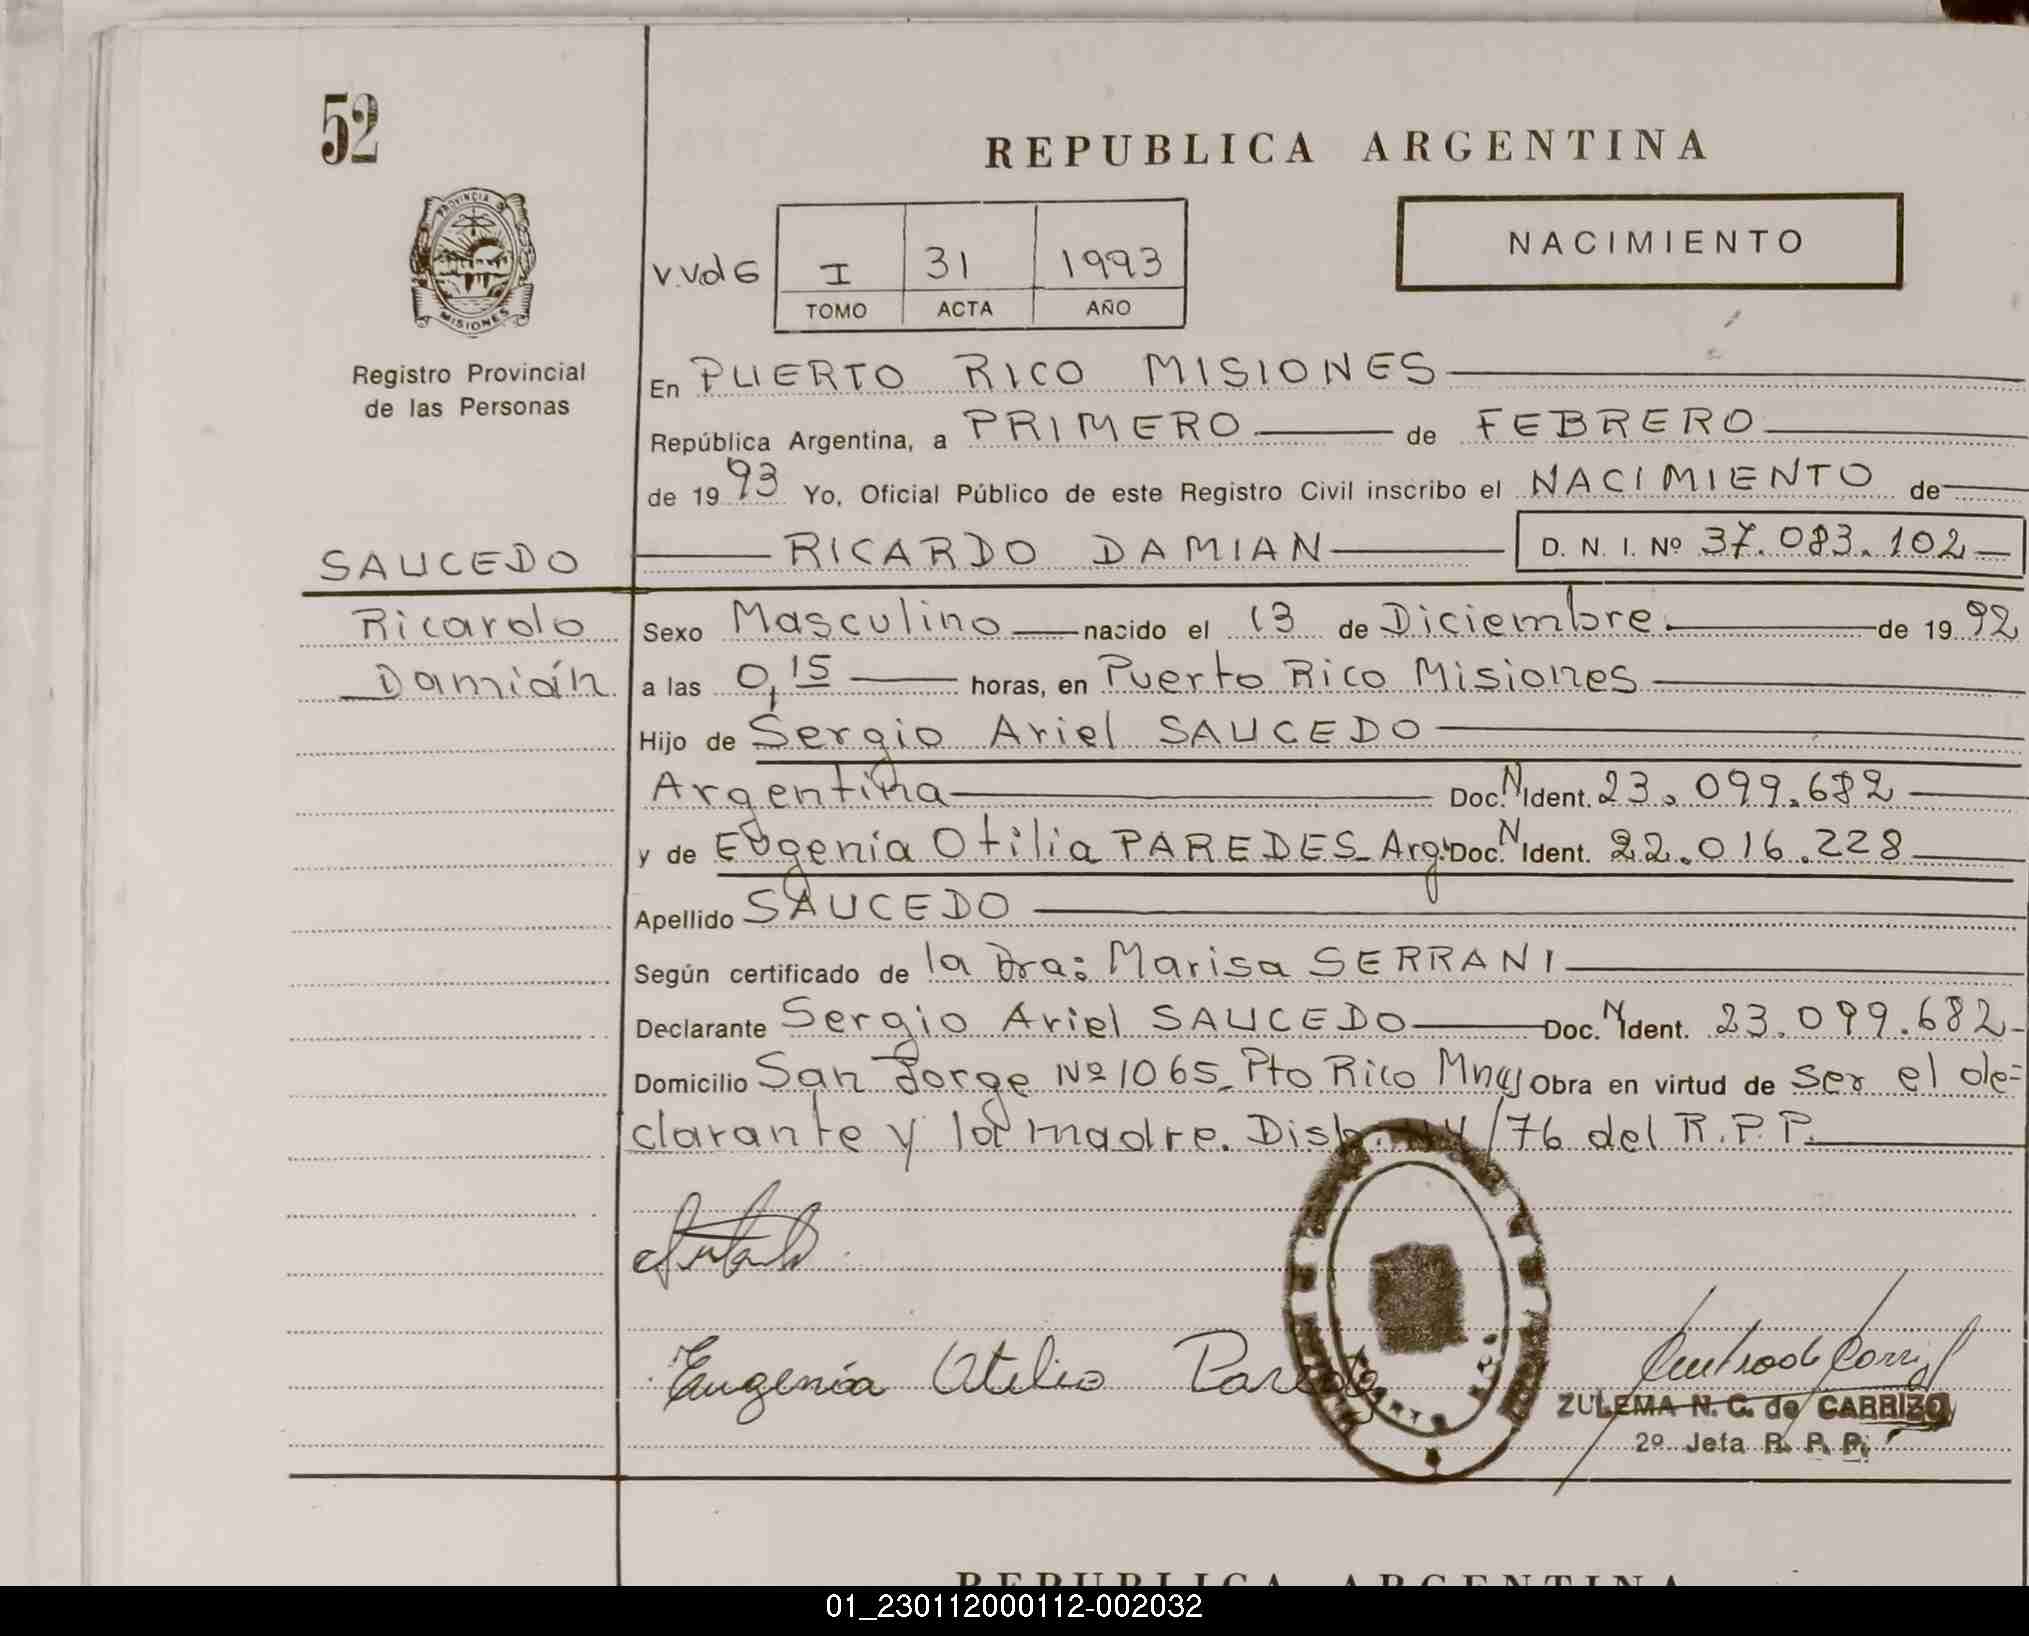 52
REPUBLICA ARGENTINA
PROVINCIA D
MISIONES
Registro Provincial
de las Personas
NACIMIENTO
V.VdG I 31 1993
TOMO ACTA AÑO
En PUERTO RICO MISIONES
República Argentina, a PRIMERO de FEBRERO
de 1993 Yo, Oficial Público de este Registro Civil inscribo el NACIMIENTO de
SAUCEDO RICARDO DAMIAN D. N. I. Nº 37.083.102
Ricardo Sexo Masculino nacido el 13 de Diciembre. de 1992
Damián a las 0,15 horas, en Puerto Rico Misiones
Hijo de Sergio Ariel SAUCEDO
Argentina Doc. N Ident. 23.099.682
y de Eugenia Otilia PAREDES_Arg. Doc. N Ident. 22.016.228
Apellido SAUCEDO
Según certificado de la Dra: Marisa SERRANI
Declarante Sergio Ariel SAUCEDO Doc. N Ident. 23.099.682
Domicilio San Jorge Nº 1065_Pto Rico Mnes Obra en virtud de ser el de=
clarante y la madre. Disp. /76 del R.P.P.
Eugenia Otilia Paredes
ZULEMA N. C. de CARRIZO
2º Jefa R. P. P.
REPUBLICA ARGENTINA
01_230112000112-002032